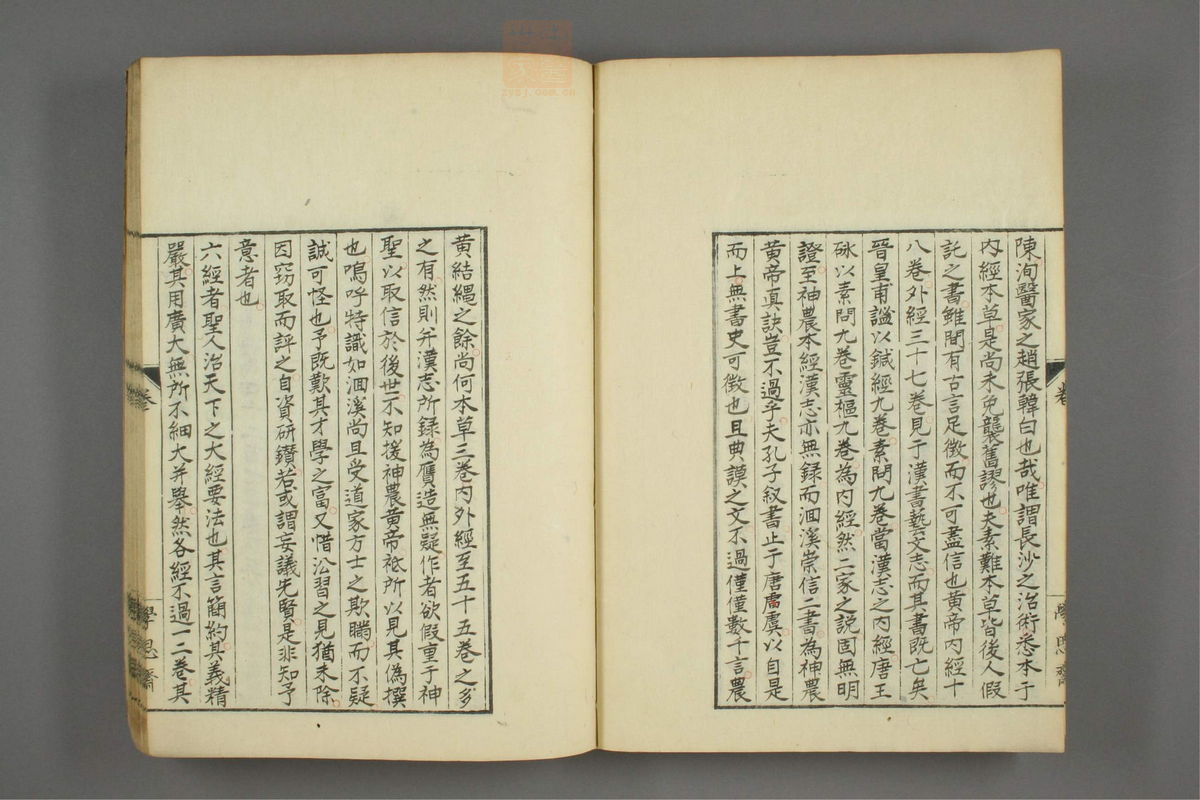 陳洵醫家之趙張韓白也哉唯謂長沙之治術悉本于
內經本草是尚未免襲舊謬也夫素難本草皆後人假
託之書雖間有古言足徵而不可盡信也黃帝內經十
八卷外經三十七卷見于漢書藝文志而其書既亡矣
晉皇甫謐以鍼經九卷素問九卷當漢志之內經唐王
砅以素問九卷靈樞九卷為內經然二家之說固無明
證至神農本經漢志亦無録而洄溪崇信二書為神農
黃帝真訣豈不過乎夫孔子叙書止于唐虞以自是
而上無書史可徵也且典謨之文不過僅僅數千言農
黃結縄之餘尚何本草三卷內外經至五十五卷之多
之有然則弁漢志所録為贗造無疑作者欲假重于神
聖以取信於後世不知援神農黃帝祗所以見其偽撰
也嗚呼特識如洄溪尚且受道家方士之欺瞞而不疑
誠可怪也予既歎其才學之富又惜沿習之見猶未除
因窃取而評之自資研鑚若或謂妄議先賢是非知予
意者也
六經者聖人治天下之大經要法也其言簡約其義精
嚴其用廣大無所不細大并舉然各經不過一二卷其
卷
學思齋
學思齋